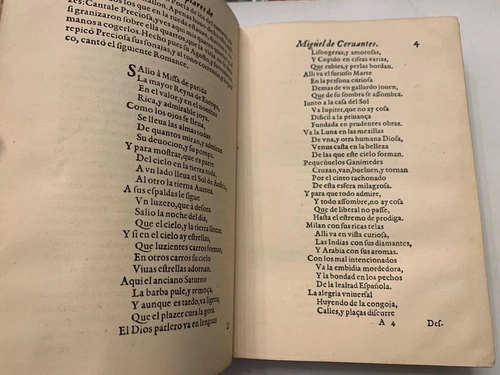 plares de
Poeta de los de
tallon. A penas huuo
nes los que en la rueda
zes: Cantale Preciosa,y ves aqui mis
si granizaron sobre ella quartos
manos a cogerlos. Hecho pues
repicó Preciosa sus sonajas, y al tono
do, cantó el siguiente Romance.
SAlio à Missa de parida
La mayor Reyna de Europa,
En el valor, y en el nombre
Rica, y admirable joya.
Como los ojos se lleua,
Se lleua las almas todas
De quantos miran, y admiran
Su deuocion, y su pompa.
Y para mostrar, que es parte
Del cielo en la tierra toda,
A vn lado lleua el Sol de Austria,
Al otro la tierna Aurora.
A sus espaldas le sigue
Vn luzero, que à desora
Salio la noche del dia,
Que el cielo, y la tierra lloran.
Y si en el cielo ay estrellas,
Que luzientes carros forman,
En otros carros su cielo
Viuas estrellas adornan.
Aqui el anciano Saturno
La barba pule, y remoça,
Y aunque es tardo, va ligero,
Que el plazer cura la gota.
El Dios parlero va en lenguas
Miguel de Ceruantes. 4
Lisongeras, y amorosas,
Y Cupido en cifras varias,
Que rubies, y perlas bordan.
Alli va el furioso Marte
En la persona curiosa
Demas de vn gallardo jouen,
Que de su sombra se assombra.
Iunto a la casa del Sol
Va Iupiter, que no ay cosa
Dificil a la priuança
Fundada en prudentes obras.
Va la Luna en las mexillas
De vna, y otra humana Diosa,
Venus casta en la belleza
De las que este cielo forman.
Pequeñuelos Ganimedes
Cruzan, van, bueluen, y tornan
Por el cinto tachonado
De esta esfera milagrosa.
Y para que todo admire,
Y todo assombre, no ay cosa
Que de liberal no passe,
Hasta el estremo de prodiga.
Milan con sus ricas telas
Alli va en vista curiosa,
Las Indias con sus diamantes,
Y Arabia con sus aromas.
Con los mal intencionados
Va la embidia mordedora,
Y la bondad en los pechos
De la lealtad Española.
La alegria vniuersal
Huyendo de la congoja,
Calles, y plaças discurre
A 4 Des-